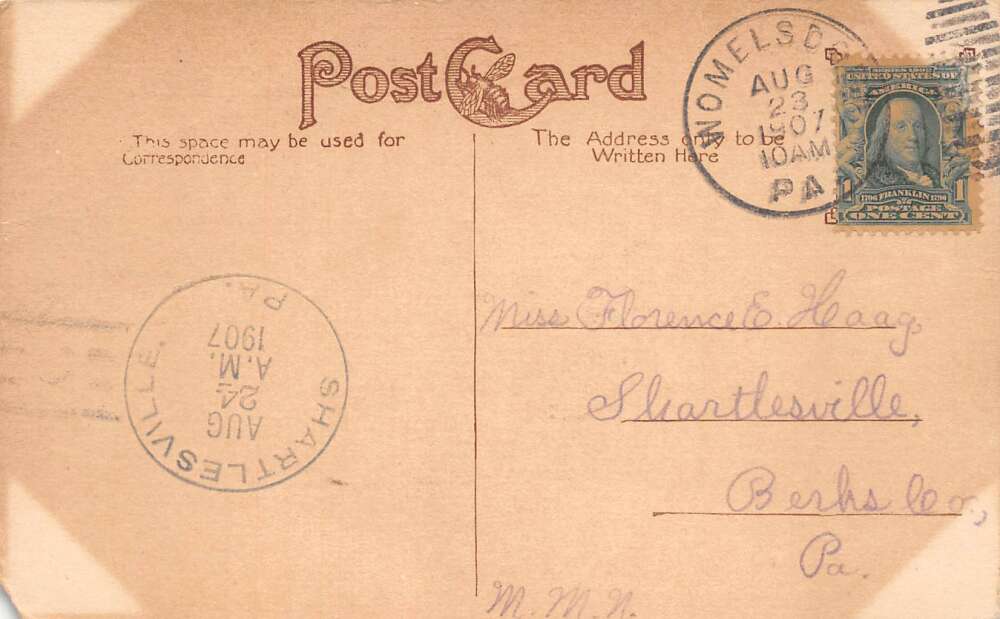 Post Card
This space may be used for
Correspondence
The Address only to be
Written Here
WOMELSDO
AUG
23
1907
10AM
PA
SERIES 1902
UNITED STATES OF
AMERICA
1 1
1706 FRANKLIN 1790
POSTAGE
ONE CENT
SHARTLESVILLE.
PA.
AUG
24
A.M.
1907
Miss Florence E. Haag,
Shartlesville,
Berks Co.,
Pa.
M. M. N.